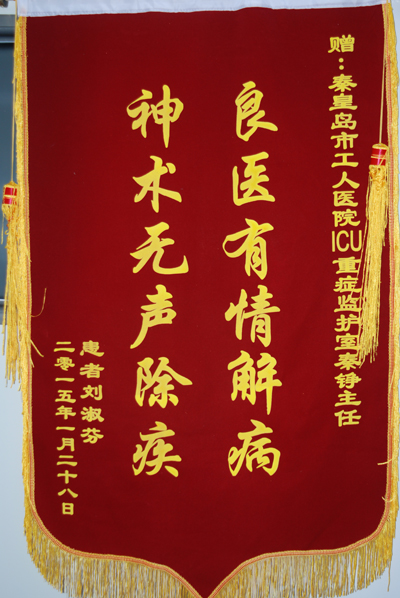 赠：秦皇岛市工人医院ICU重症监护室秦铮主任
良医有情解病
神术无声除疾
患者刘淑芬
二零一五年一月二十八日